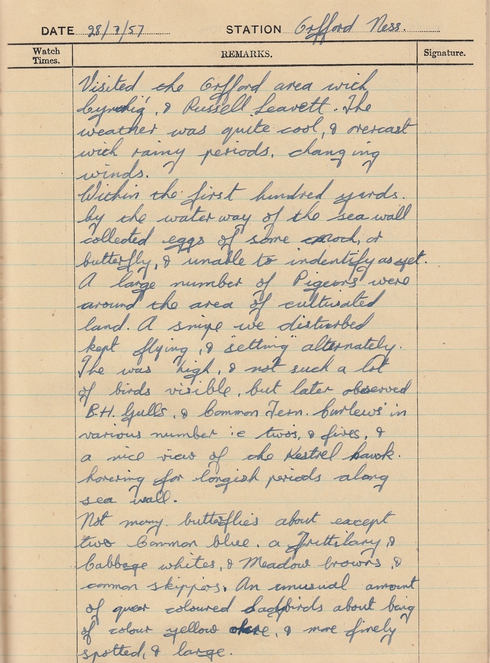 DATE 28/7/57 STATION Orfford Ness.
Watch Times. REMARKS. Signature.
Visited the Orfford area wich
& Russell Leavett. The
weather was quite cool, & overcast
wich rainy periods, changing
winds.
Within the first hundred yards.
by the waterway of the sea wall
collected eggs of some moch, or
butterfly, & unable to indentify as yet.
A large number of Pigeons were
around the area of cultured
land. A snipe we disturbed
kept flying, & "setting" alternately.
The was high, & not such a lot
of birds visible, but later observed
B.H. Gulls, & Common Tern. Curlews in
various number i.e twos, & fives, &
a nice view of the Kestrel hawk.
hovering for longish periods along
sea wall.
Not many butterflies about except
two Common blue. a Frittilary, &
Cabbage whites, & Meadow browns, &
common skippers. An unusual amount
of quear coloured Ladybirds about being
of colour yellow, & more finely
spotted, & large.